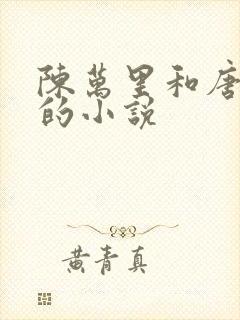 陳萬里和唐
的小說
黃青真